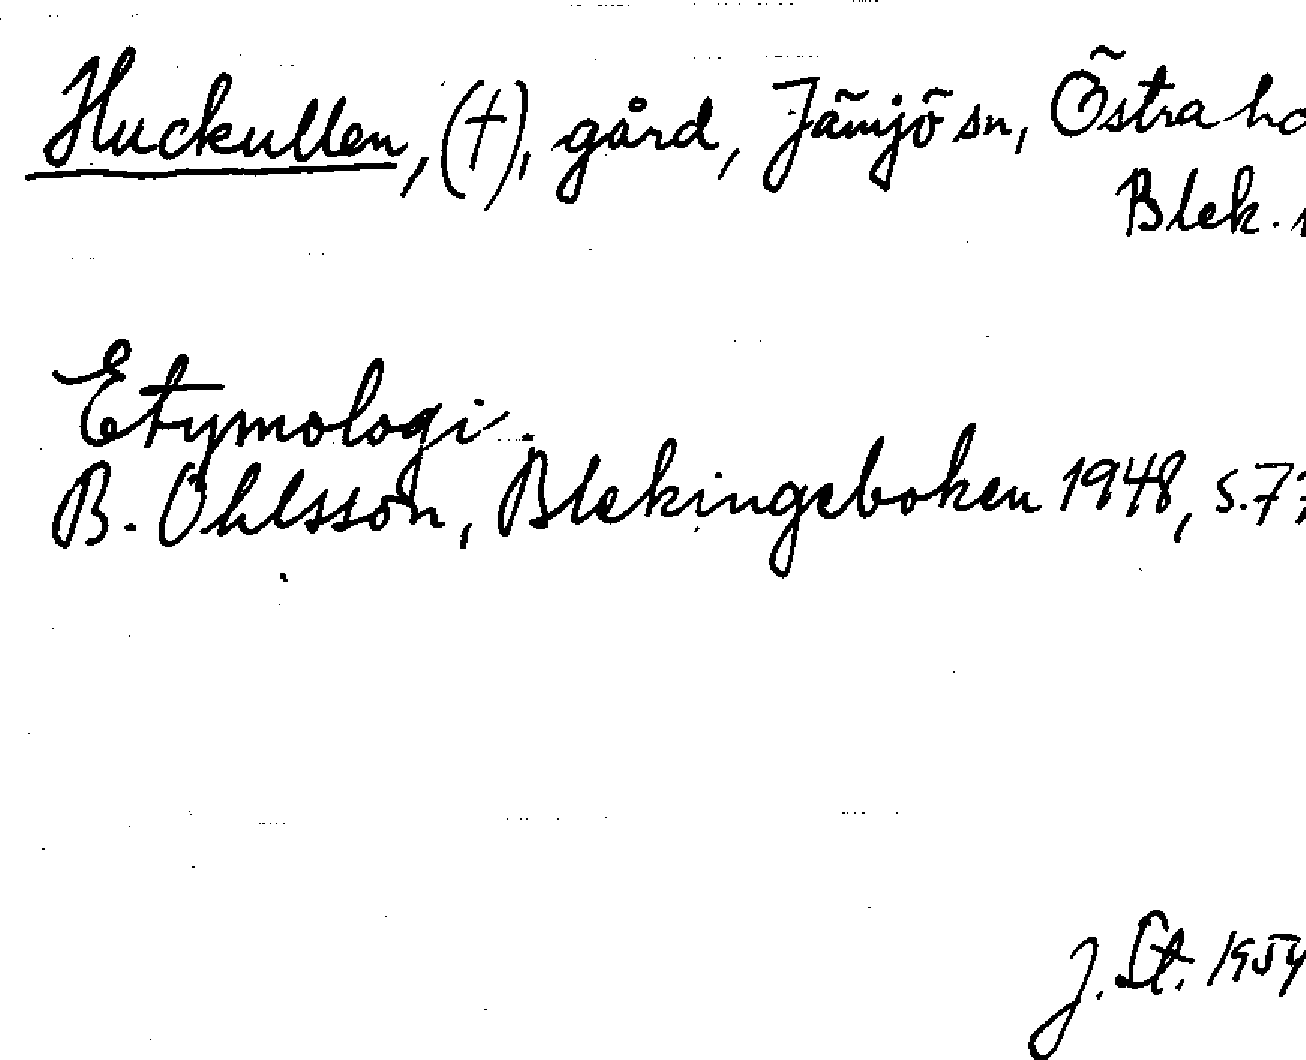 Huckullen, (†), gård, Jämjö sn, Östra
Blek.
Etymologi.
B. Ohlsson, Blekingeboken 1948, s.
J. St. 1954